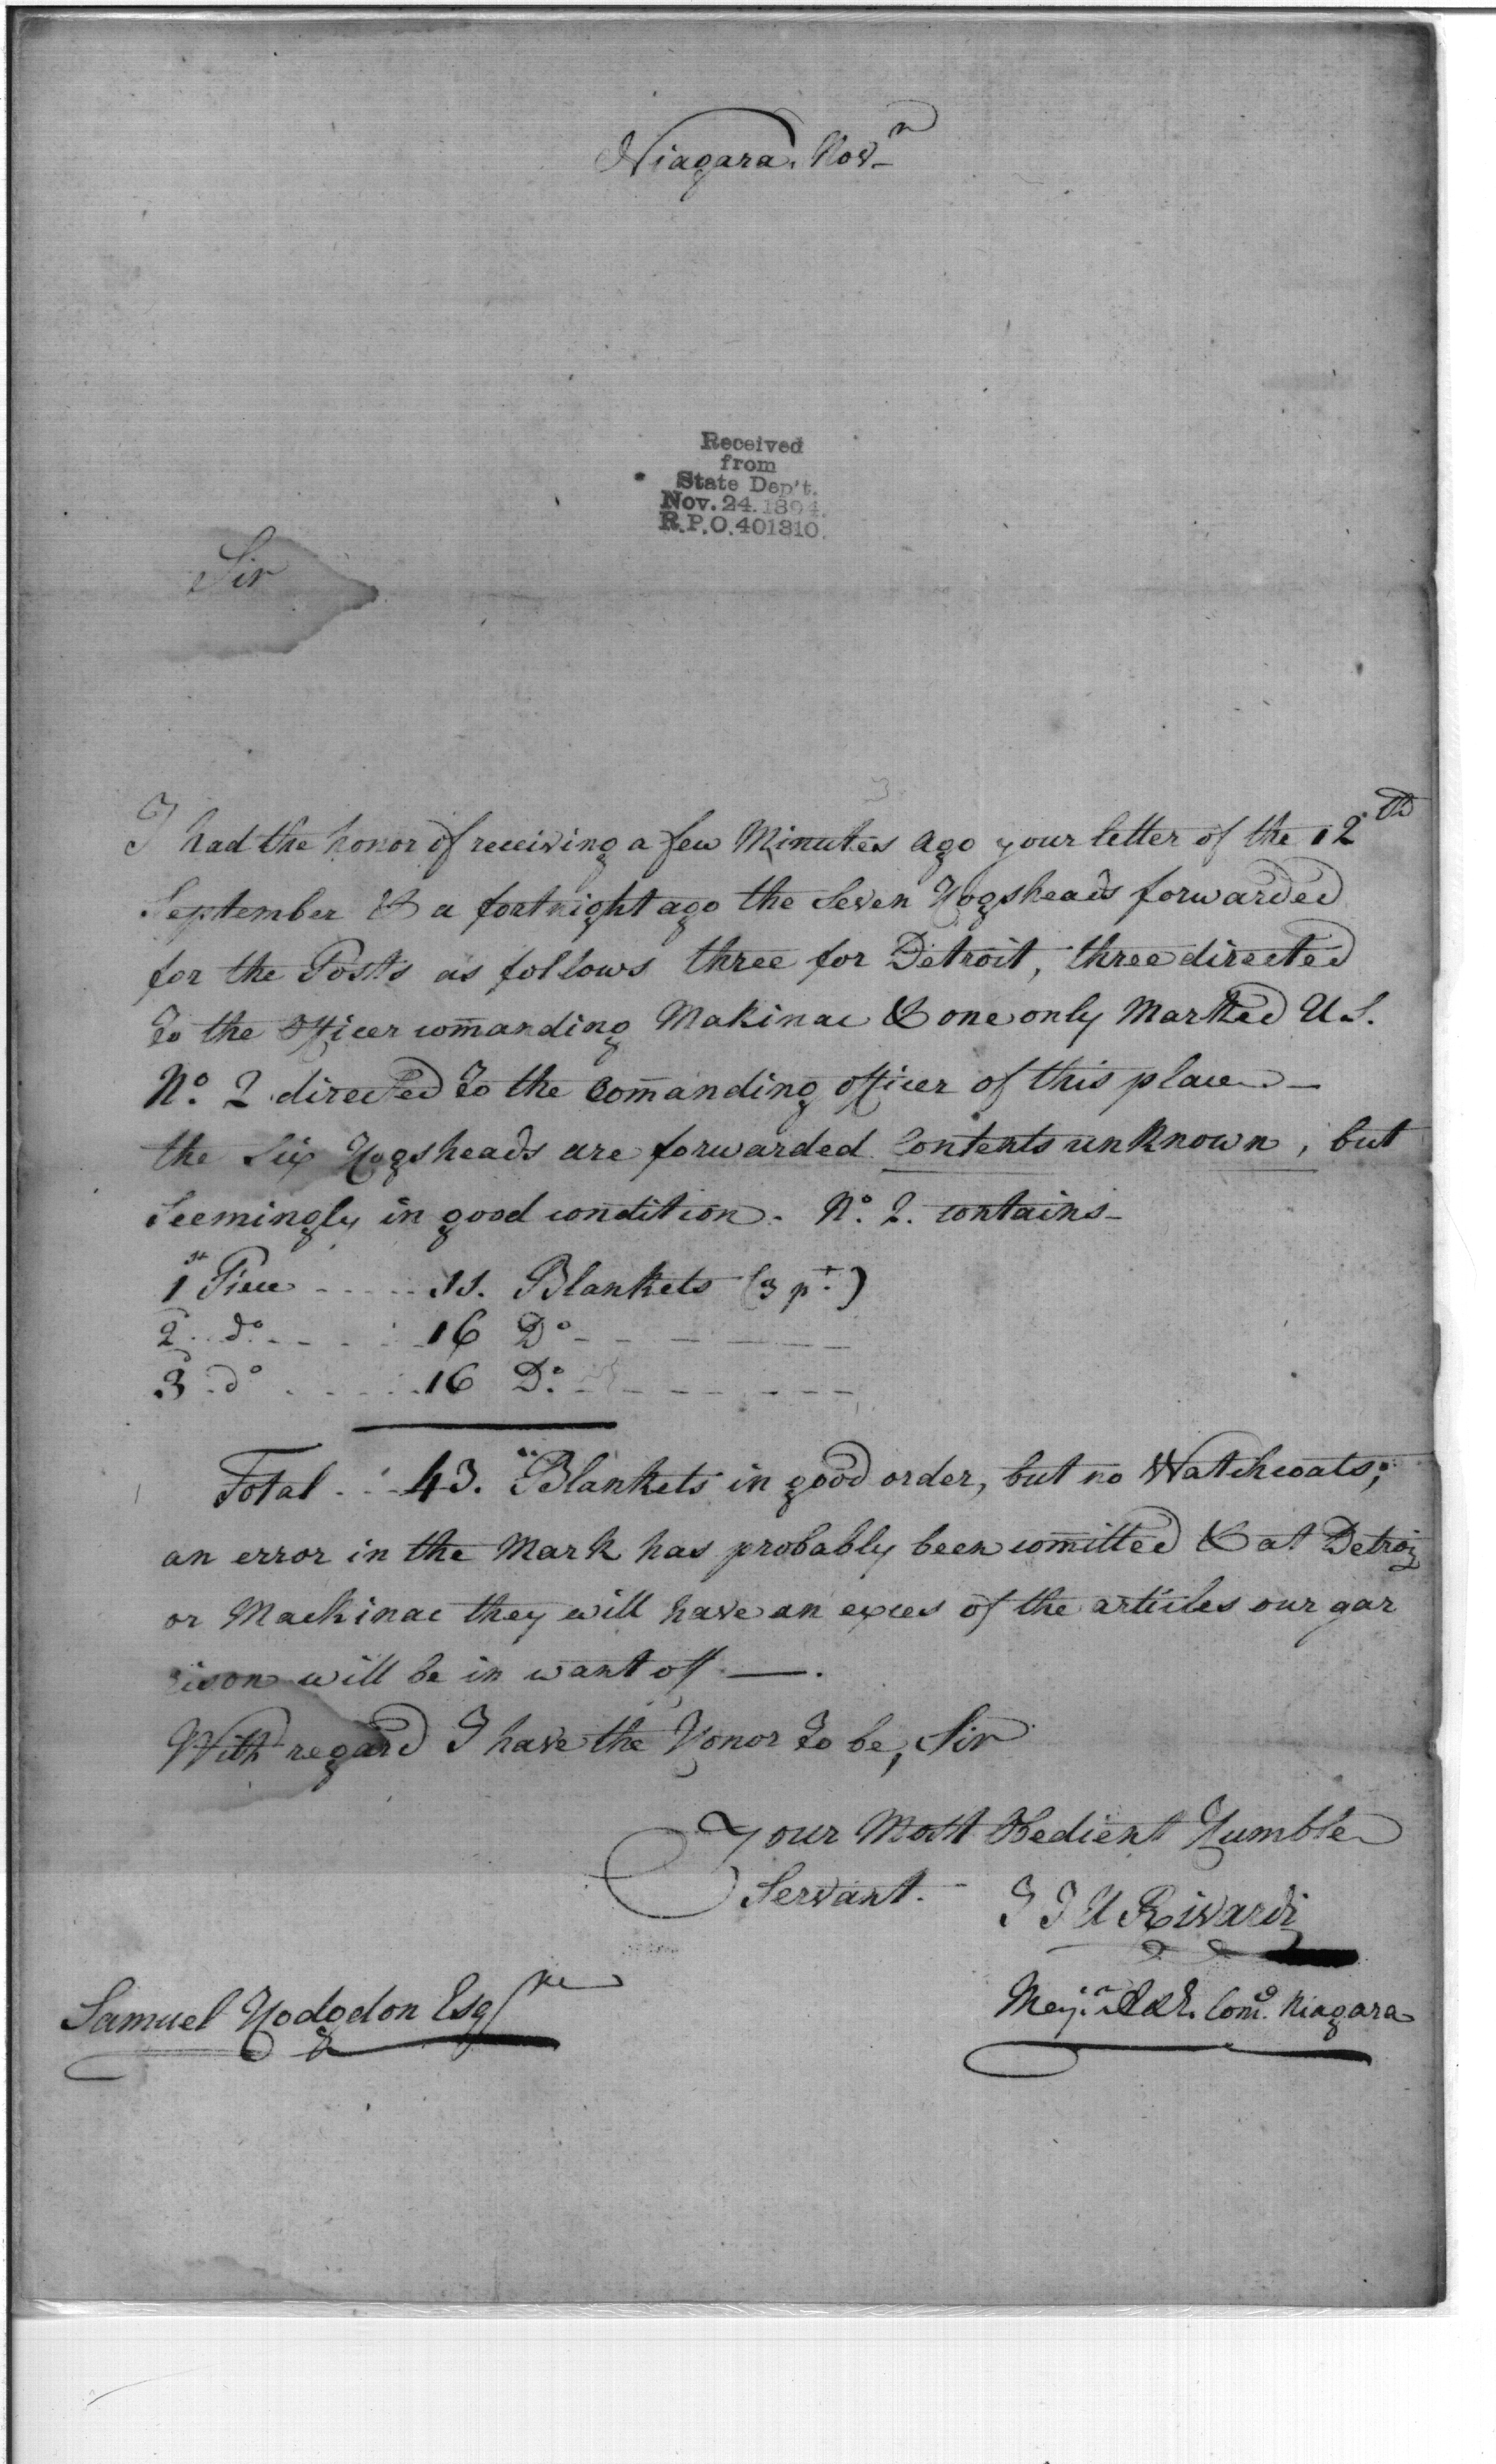 Niagara. Nov.r
Received
from
State Dep't.
Nov. 24. 1894.
R.P.O. 401310.
Sir
I had the honor of receiving a few Minutes ago your letter of the 12th
September & a fortnight ago the Seven Hogsheads forwarded
for the Posts as follows three for Detroit, three directed
To the Officer comanding Makinac & one only Marked U S.
No. 2 directed To the Comanding officer of this place –
the Six Hogsheads are forwarded Contents unknown, but
Seemingly in good condition. No. 2. contains –
1st Piece - - - - - 11. Blankets (3 pt.)
2. do. - - - - 16 Do - - - - -
3d do - - - - 16 Do. - - - - - -
Total . . . 43. Blankets in good order, but no Watchcoats;
an error in the Mark has probably been comitted & at Detroit
or Mackinac they will have an exces of the articles our gar
rison will be in want off —.
With regard I have the Honor To be, Sir
Your Most Obedient Humble
Servant. –
J J U Rivardi
Samuel Hodgdon Esqre
Majr. A & E. Comd. Niagara